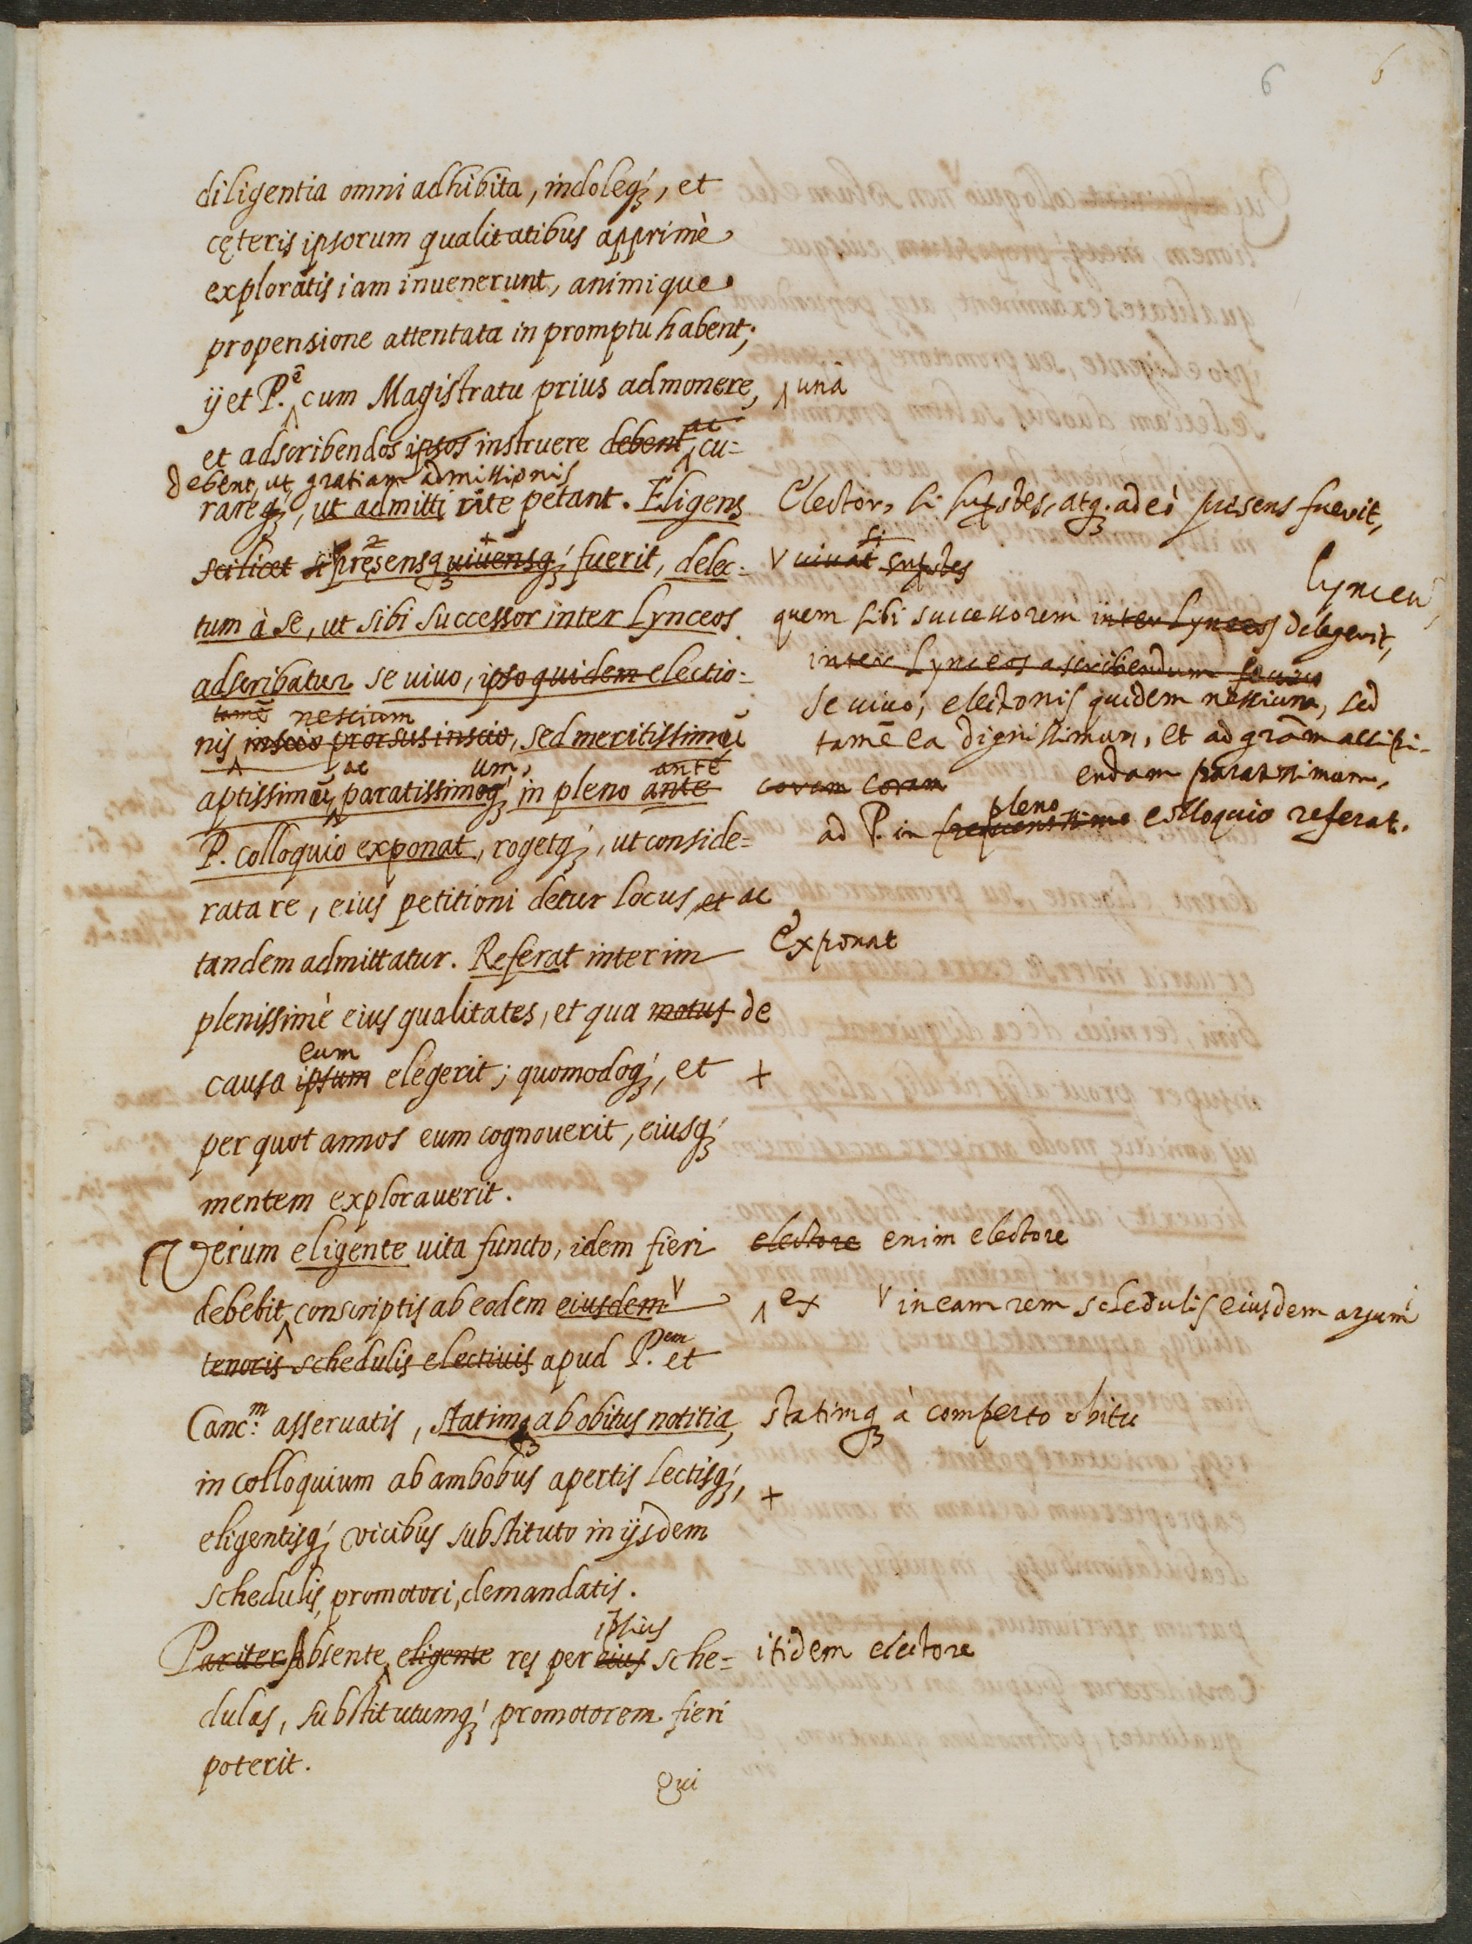 6 6
diligentia omni adhibita, indoleq;, et
cęteris ipsorum qualitatibus apprimè
exploratis iam inuenerunt, animique
propensione attentata in promptu habent;
ij et P.ē cum Magistratu prius admonere, ^ una
et adscribendos ipsos instruere debent, ac cu-
debent, ut gratiam admissionis
rareq;, ut admitti rite petant. Eligens
Elector, si supstes, atq. adeò presens fuerit,
scilicet si pręsensq uiuensq; fuerit, delec-
v uiuat si supstes
tum à se, ut sibi successor inter Lynceos
quem sibi successorem inter Lynceos delegerit,
Lynceū
adscribatur se uiuo, ipso quidem electio-
inter Lynceos ascribendum se uiuo
tamē nescium
se uiuo, electonis quidem nescium, sed
nis inscio prorsus inscio, sed meritissimoū
tamē ea dignissimum, et ad grām accipi-
ac um, ante
endam paratissimum,
aptissimoū, paratissimoq; in pleno ante
coram coram
pleno
ad P. in frequentissimo colloquio referat.
P. colloquio exponat, rogetq;, ut conside-
rata re, eius petitioni detur locus, et ac
tandem admittatur. Referat interim
exponat
plenissimè eius qualitates, et qua motus de
eum
causa ipsum elegerit; quomodoq;, et +
per quot annos eum cognouerit, eiusq;
mentem explorauerit.
Verum eligente uita functo, idem fieri
electore enim electore
debebit ^ conscriptis ab eodem eiusdem v
^ ex v in eam rem schedulis eiusdem argumi
tenoris schedulis electiuis apud P.em et
Canc.m asseruatis, statimq; ab obitus notitia,
statimq; à comperto obitu
in colloquium ab ambobus apertis lectisq;, +
eligentisq; vicibus substituto in ijsdem
schedulis, promotori, demandatis.
ipsius
Pariter Absente ^ eligente res per eius sche-
itidem electore
dulas, substitutumq; promotorem fieri
poterit.
Qui